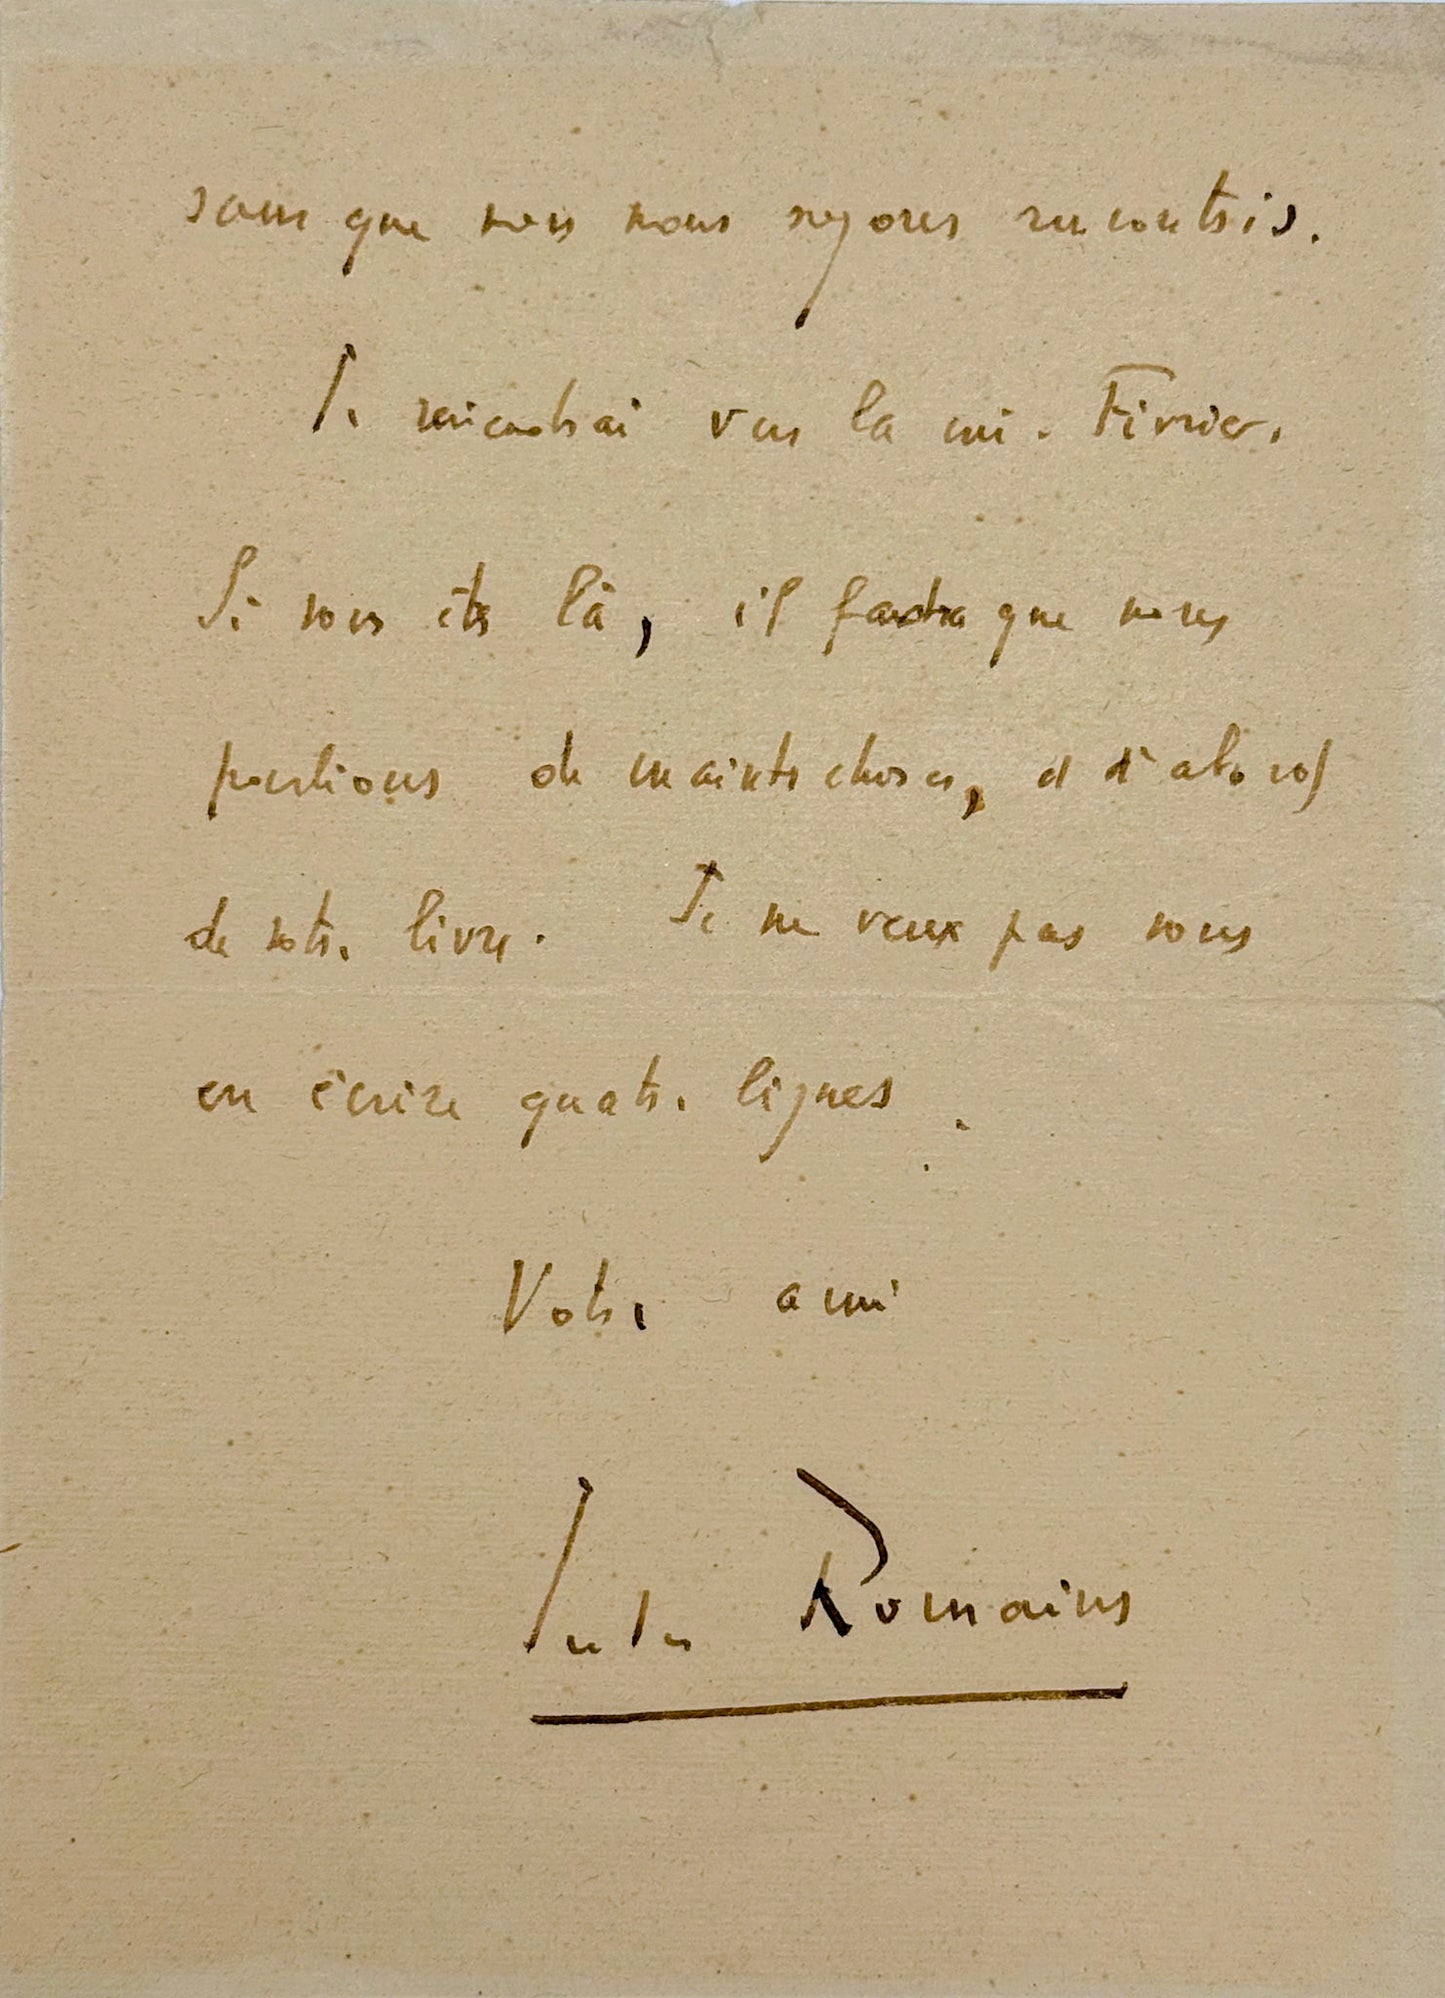 sans que nous nous soyons rencontrés.
Je reviendrai vers la mi-Février.
Si vous êtes là, il faudra que nous
parlions de maintes choses, et d'abord
de votre livre. Je ne veux pas vous
en écrire quatre lignes.
Votre ami
Jules Romains